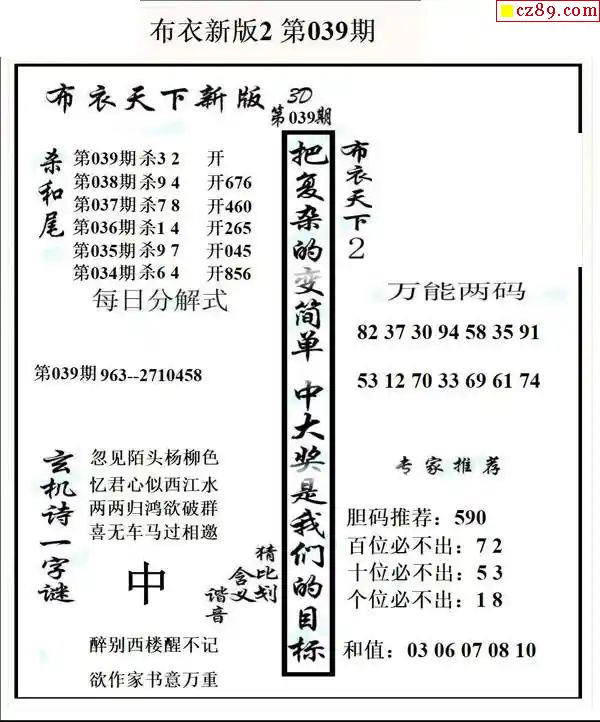 cz89.com
布衣新版2 第039期
布衣天下新版 3D
第039期
杀和尾
第039期 杀3 2 开
第038期 杀9 4 开676
第037期 杀7 8 开460
第036期 杀1 4 开265
第035期 杀9 7 开045
第034期 杀6 4 开856
每日分解式
第039期 963--2710458
玄机诗一字谜
忽见陌头杨柳色
忆君心似西江水
两两归鸿欲破群
喜无车马过相邀
中
猜比划
含义
谐音
醉别西楼醒不记
欲作家书意万重
把复杂的变简单 中大奖是我们的目标
布衣天下2
万能两码
82 37 30 94 58 35 91
53 12 70 33 69 61 74
专家推荐
胆码推荐：590
百位必不出：7 2
十位必不出：5 3
个位必不出：1 8
和值：03 06 07 08 10